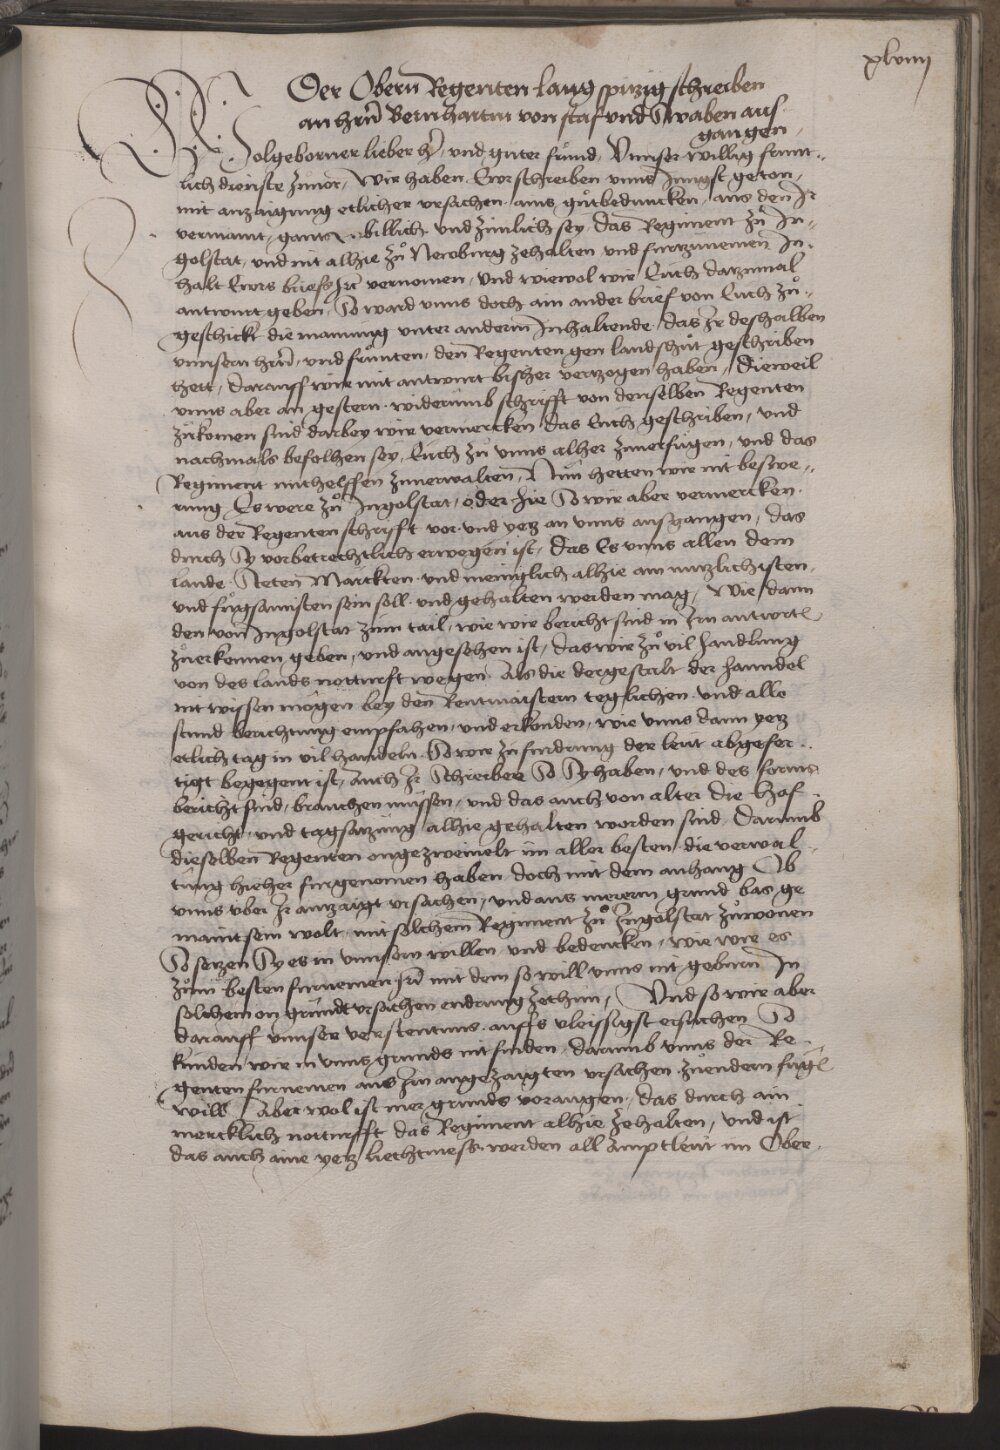 xlviiij
Der Obern Regenten lang spitzig schreiben
an hern Bernhartin von staf und Swaben aus
gangen
Wolgeborner lieber her, und guter fründ, Unnser willig frunt„
lich dienste zuuor, Wir haben Ewr schreiben unns Jungst geton,
mit anzaigung etlicher ursachen aus gutbeduncken, aus den Ir
vermaint, gantz billich und zimlich sey, das Regiment zu In„
golstat, und nit alhie zu Newburg zehalten und furzunemen In„
halt Ewrs briefs vernomen, Und wiewol wir Euch datzumal
antwurt geben, So ward unns doch ain ander brief von Euch zu„
geschickt die mainung unter anderm Inhaltende, das Ir deshalben
unnsern hern, und frunten, den Regenten gen landshut geschriben
hett, darauff wir mit antwurt bisher vertzogen haben, Dieweil
unns aber an gestern widerumb schrifft von denselben Regenten
zukomen sind darbey wir vermercken das Euch geschriben, und
nachmals befolhen sey, Euch zu unns alher zuuerfugen, und das
Regiment mithelffen zuuerwalten, Nun hetten wir nit beswe„
rung Es were zu Ingolstat, oder hie So wir aber vermercken
aus der Regenten schrifft vor und yetz an unns ausgangen, das
durch Sy vorbetrechtlich erwegen ist, das Es unns allen dem
lande Steten Marckten und meniglich alhie am nutzlichisten,
und fugsamisten sein soll und gehalten werden mag, Wie dann
den von Ingolstat zum tail, wie wir bericht sind in Irn antwurt
zuerkennen geben, und angesehen ist, das wir zu vil handlung
von des lands notturft wegen Als die dergestalt der hanndel
nit wissen mögen bey den Rentmaistern teglichen und alle
stund berichtung empfahen, und erkonden, wie unns dann yetz
etlich tag in vil handeln So wir zu findrung der leut abgefer„
tigt begegent ist, Auch Ir Schreiber So Sy haben, und des forms
bericht sind, brauchen müssen, und das auch von alter die Hof„
gericht, und tagsatzung alhie gehalten worden sind, Darumb
dieselben Regenten ongezweiuelt im aller besten die verwal„
tung hieher furgenomen haben doch mit dem anhang Ob
unns uber Ir antzaigt ursachen, und aus mererm grund bas ge
maint sein wolt, mit solchem Regiment zu Ingolstat zuwonen
So setzen Sy es in unnsern willen und bedencken, wie wir es
zum besten furnemen mit dem so will unns nit geburn In
solchem on gründt ursachen endrung zethun, Und so wir aber
darauff unnser verstentnus auffs vleissigst ersuchen So
kunden wir in unns grunds nit finden, darumb unns der Re„
genten furnemen aus Irn angezaigten ursachen zuendern fugen
will, Aber wol ist mer grunds voraugen, das durch ain
mercklich notturfft das Regiment alhie zehalten, und ist
das auch aine yetz liechtmess werden all Amptleut im Ober